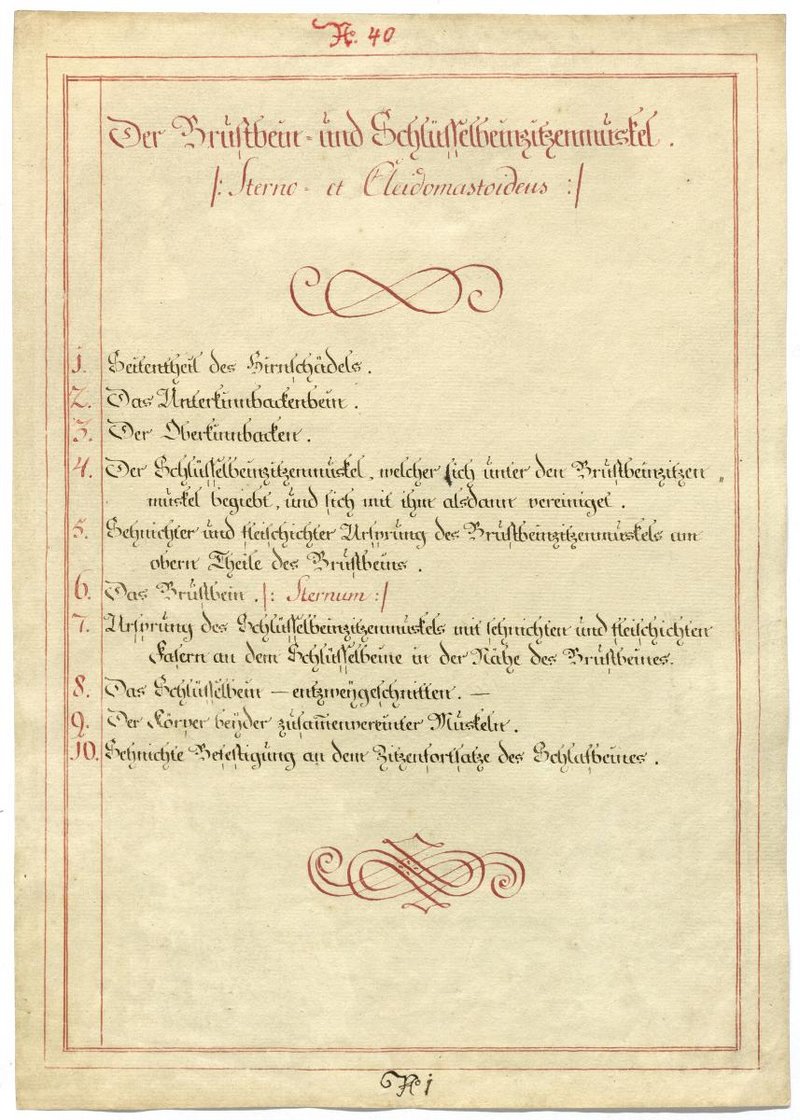 No. 40
Der Brustbein- und Schlüsselbeinzitzenmuskel.
/: Sterno- et Cleidomastoideus :/
1. Seitentheil des Hirnschädels.
2. Das Unterkinnbackenbein.
3. Der Oberkinnbacken.
4. Der Schlüsselbeinzitzenmuskel, welcher sich unter den Brustbeinzitzen„
muskel begiebt, und sich mit ihm alsdann vereiniget.
5. Sehnichter und fleischichter Ursprung des Brustbeinzitzenmuskels am
obern Theile des Brustbeins.
6. Das Brustbein. /: Sternum :/
7. Ursprung des Schlüsselbeinzitzenmuskels mit sehnichten und fleischichten
Fasern an dem Schlüsselbeine in der Nähe des Brustbeines.
8. Das Schlüsselbein — entzweygeschnitten. —
9. Der Körper beyder zusam̅envereinter Muskeln.
10. Sehnichte Befestigung an dem Zitzenfortsatze des Schlafbeines.
No 1